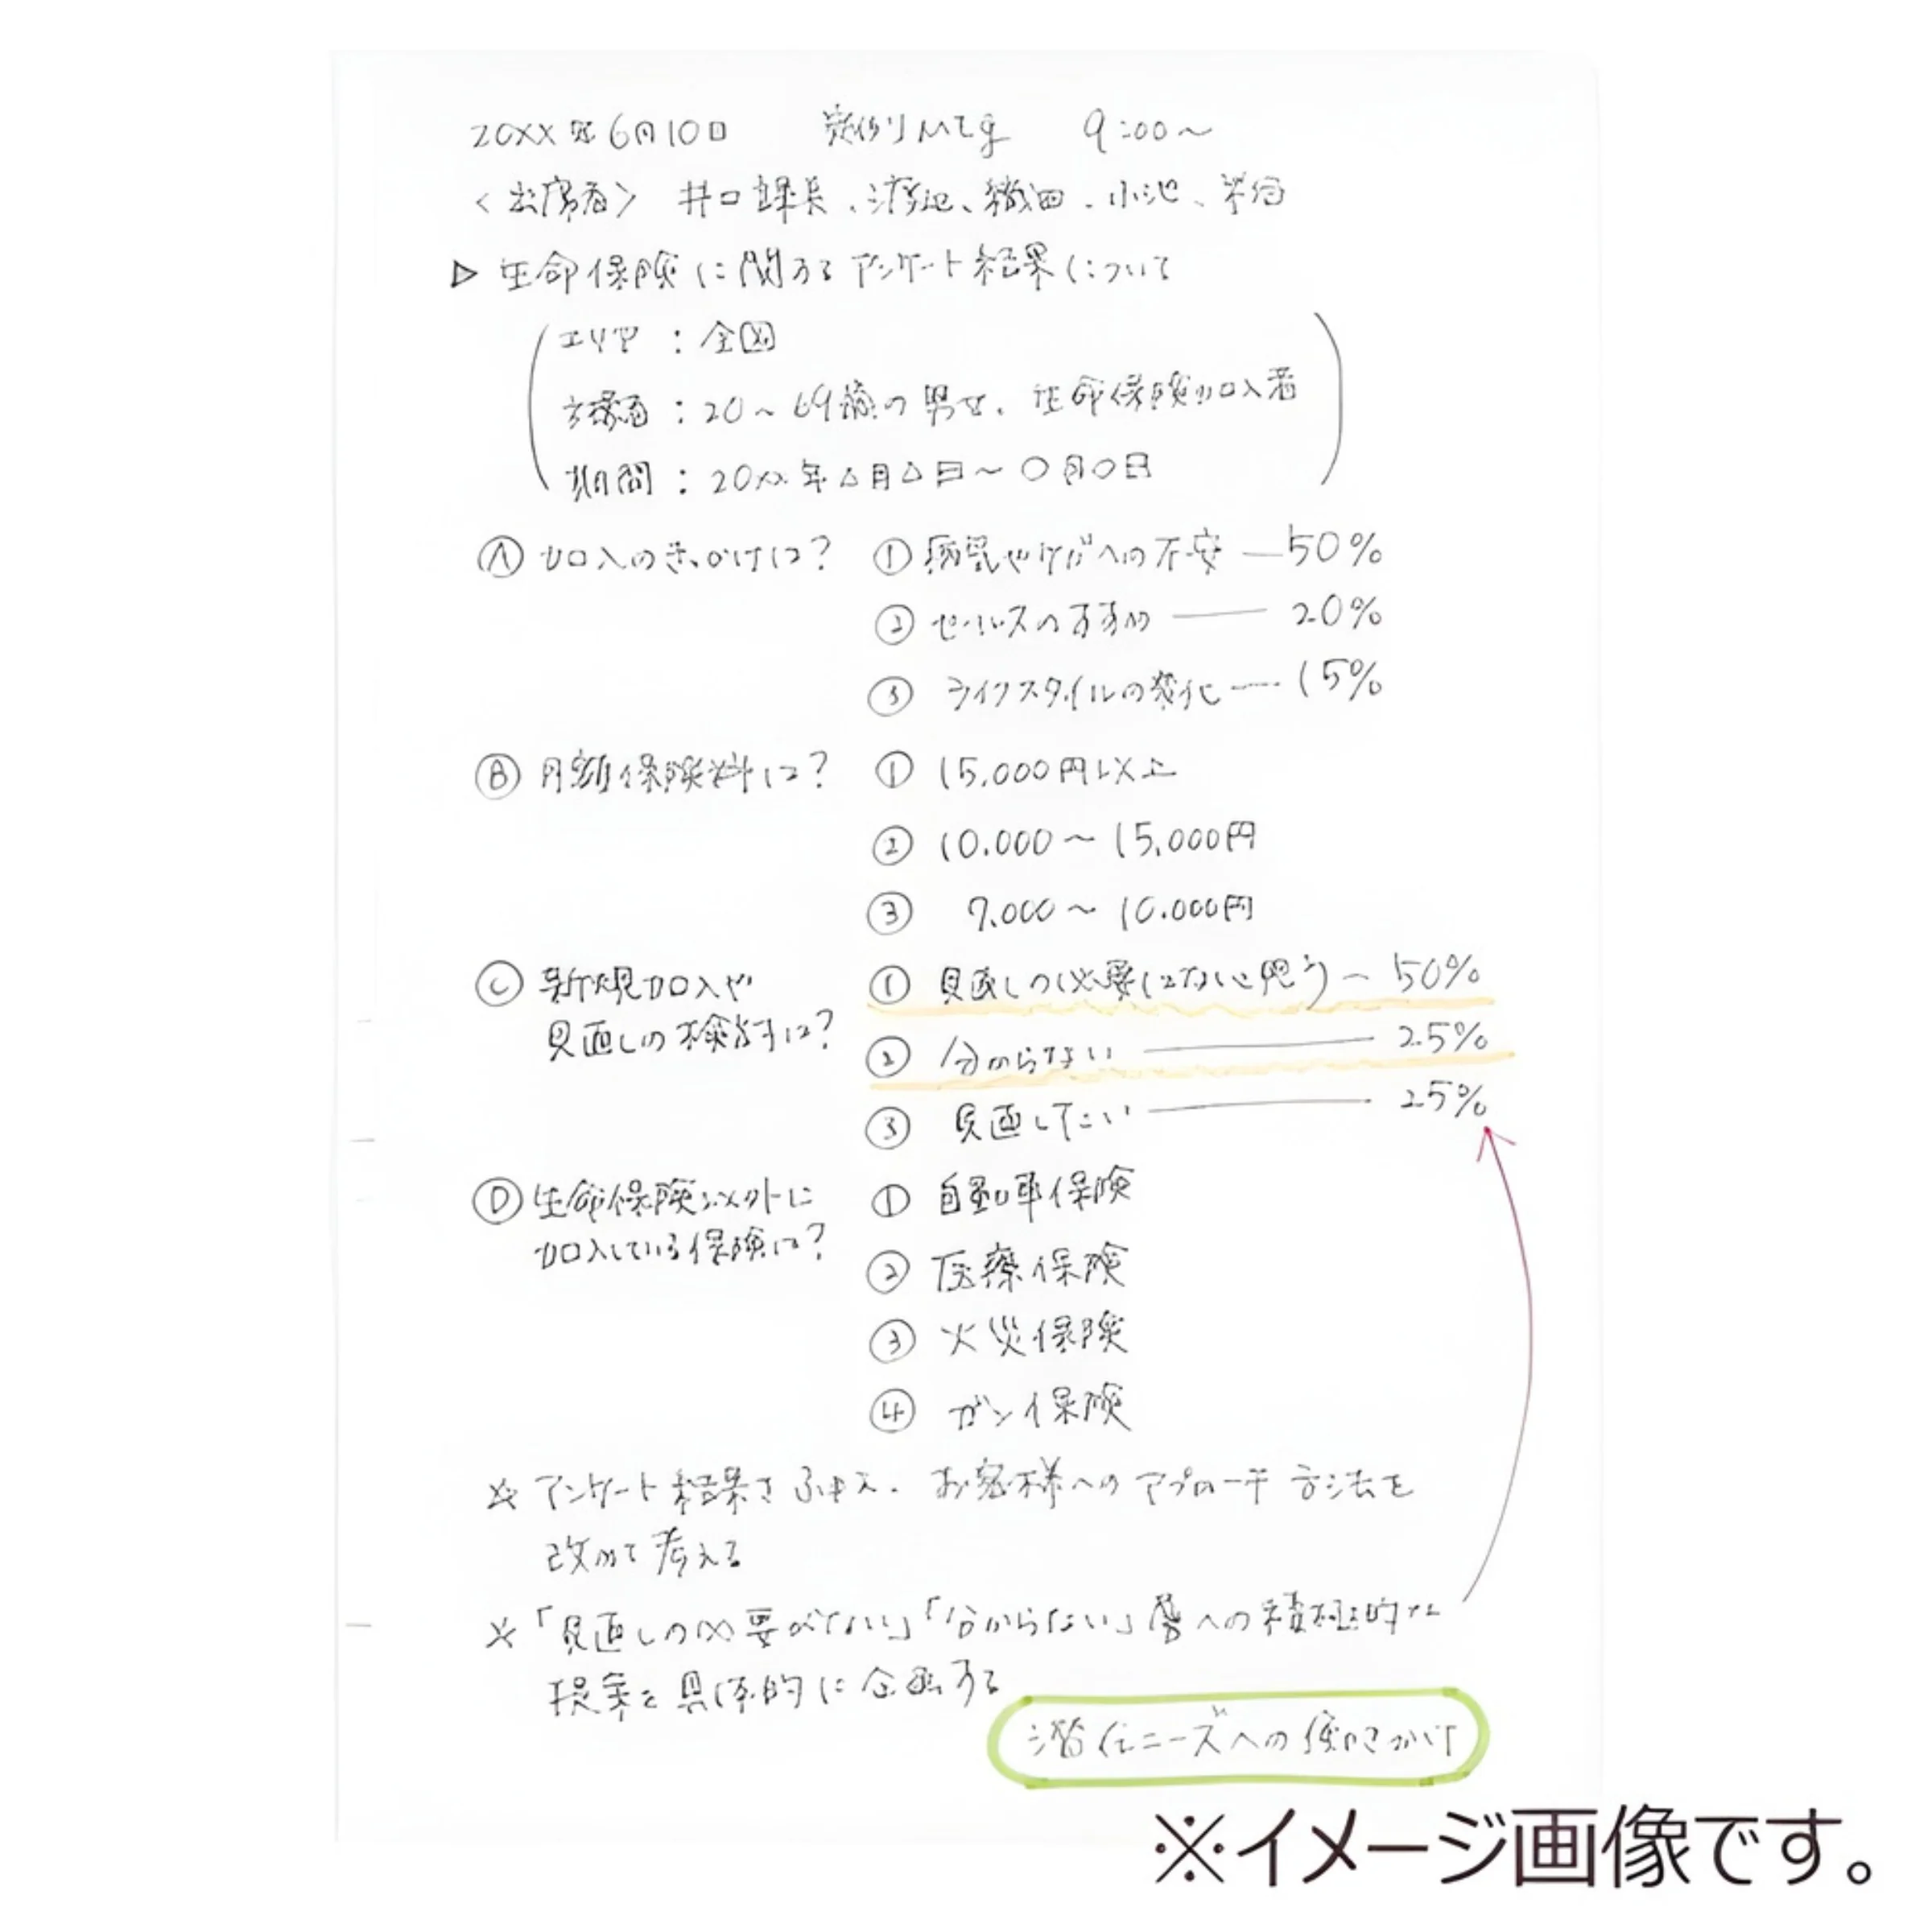 20XX年6月10日 定例Mtg 9:00～
＜出席者＞ 井口課長、渡辺、織田、小池、
▷ 生命保険に関するアンケート結果について
エリア：全国
対象者：20～69歳の男女、生命保険加入者
期間：20xx年△月△日～〇月〇日
Ⓐ 加入のきっかけは？ ① 病気やケガへの不安 — 50%
② セールスのすすめ — 20%
③ ライフスタイルの変化 — 15%
Ⓑ 月額保険料は？ ① 15,000円以上
② 10,000～15,000円
③ 7,000～10,000円
Ⓒ 新規加入や ① 見直しの必要はないと思う — 50%
見直しの検討は？ ② 分からない — 25%
③ 見直したい — 25%
Ⓓ 生命保険以外に ① 自動車保険
加入している保険は？ ② 医療保険
③ 火災保険
④ ガン保険
☆ アンケート結果をふまえ、お客様へのアプローチ方法を
改めて考える
※「見直しの必要がない」「分からない」層への積極的な
提案を具体的に企画する
潜在ニーズへの働きかけ
※イメージ画像です。